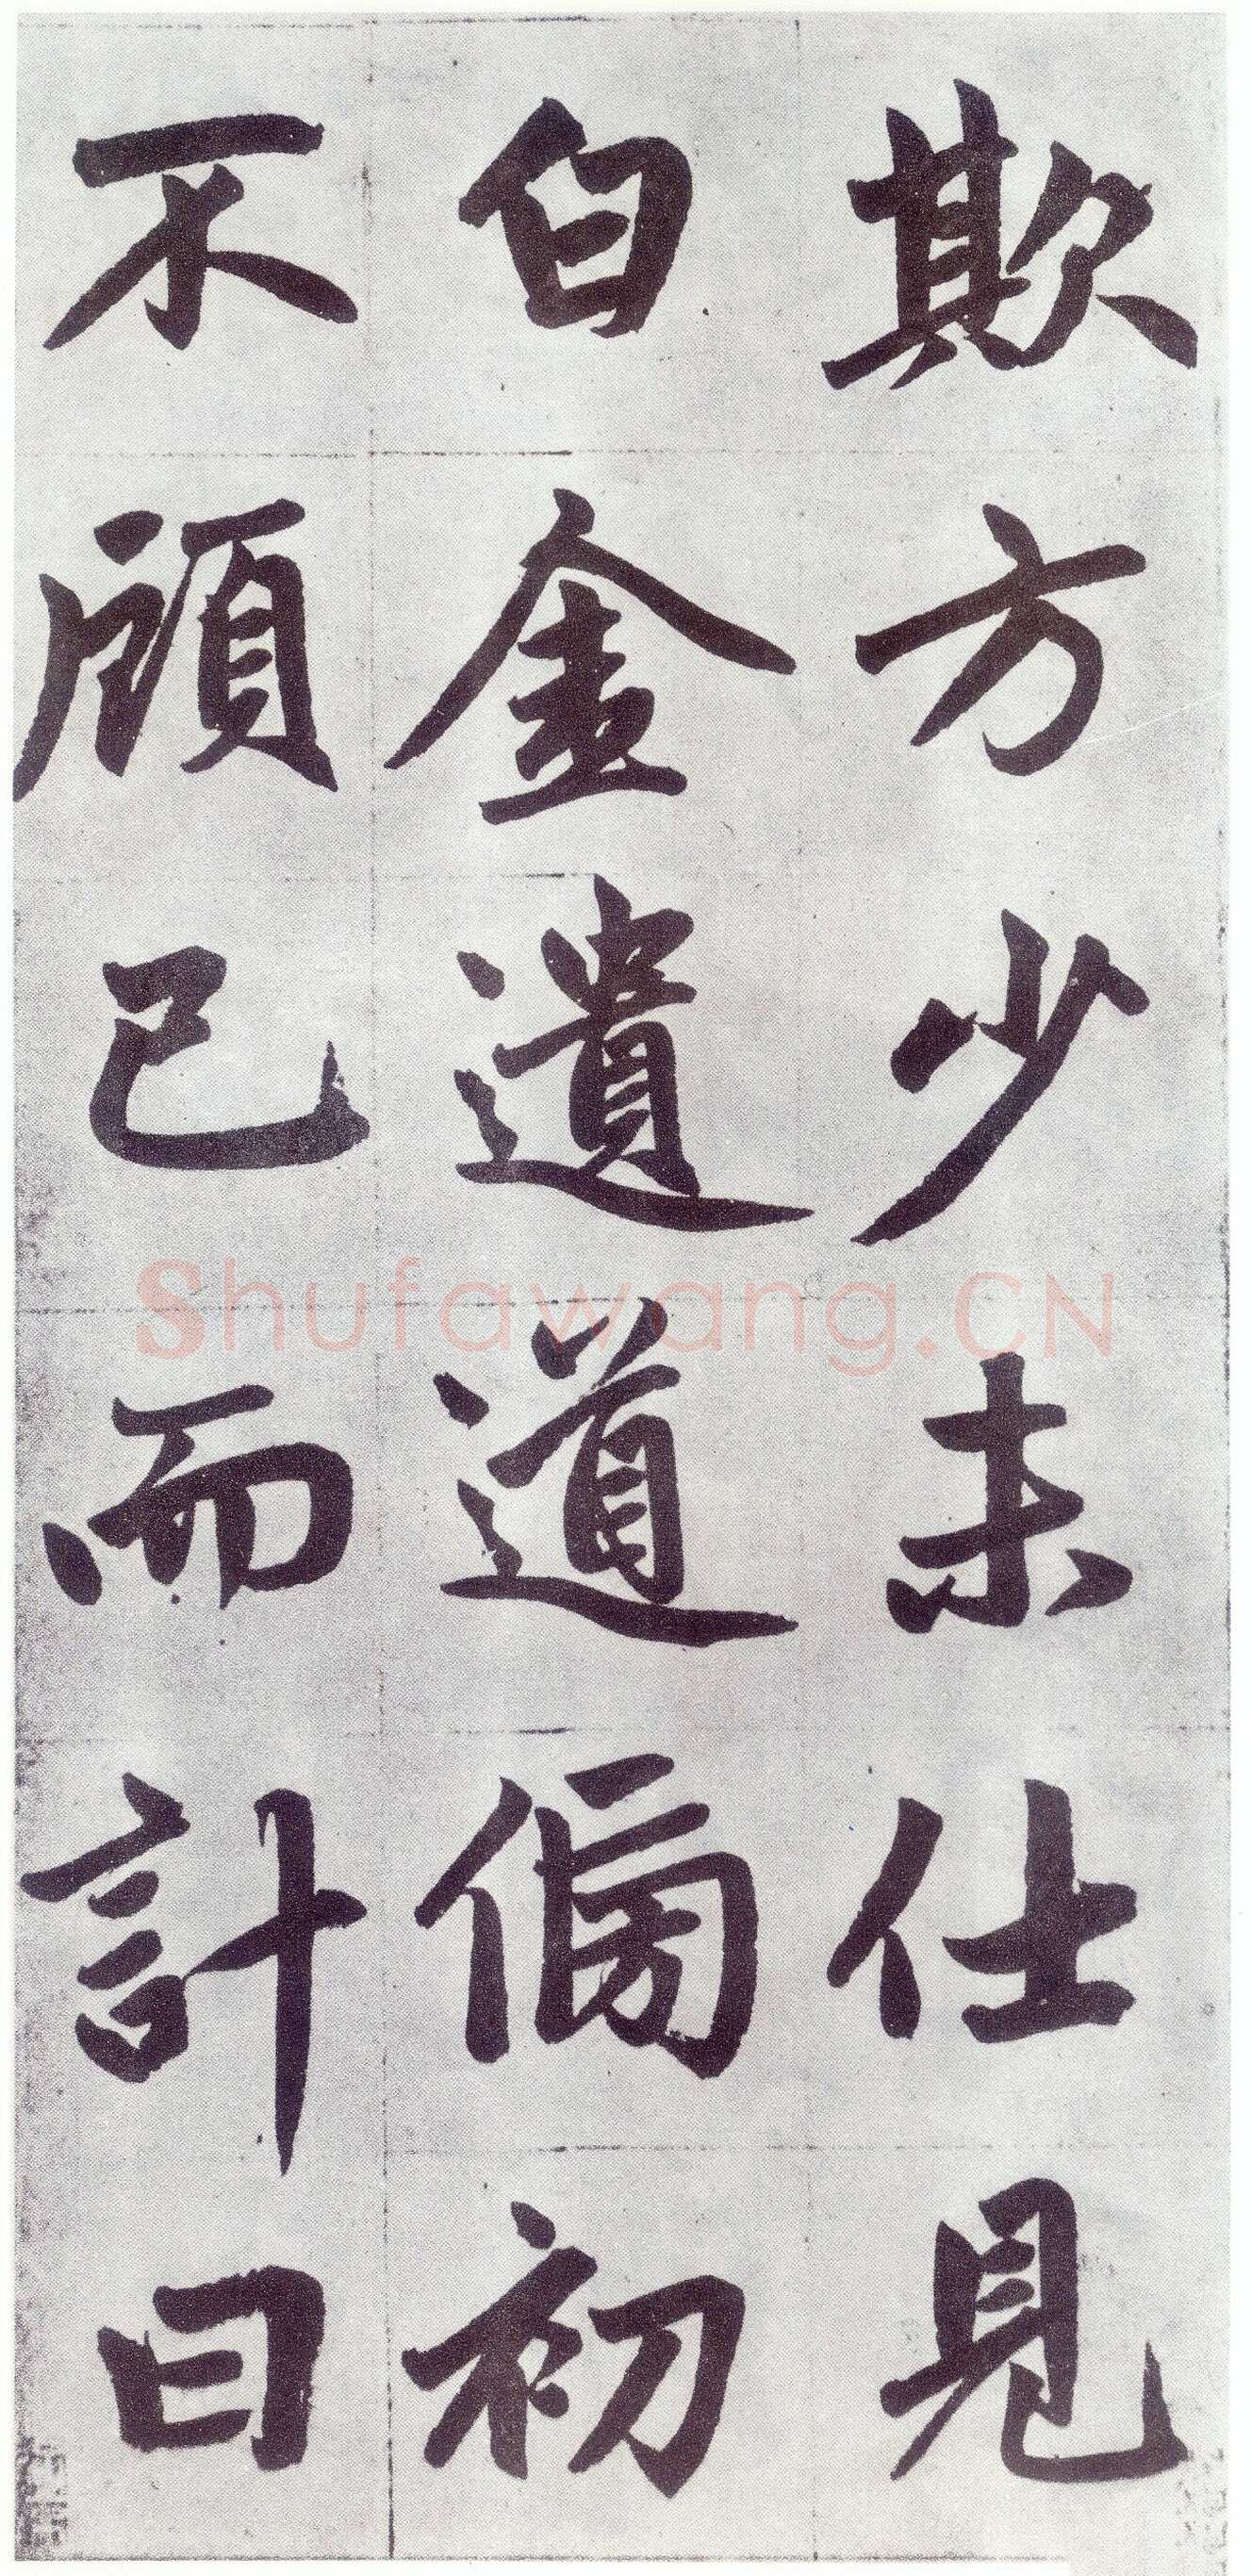 欺方少未仕見
白金遺道傍初
不顧已而計日
Shufawang.CN